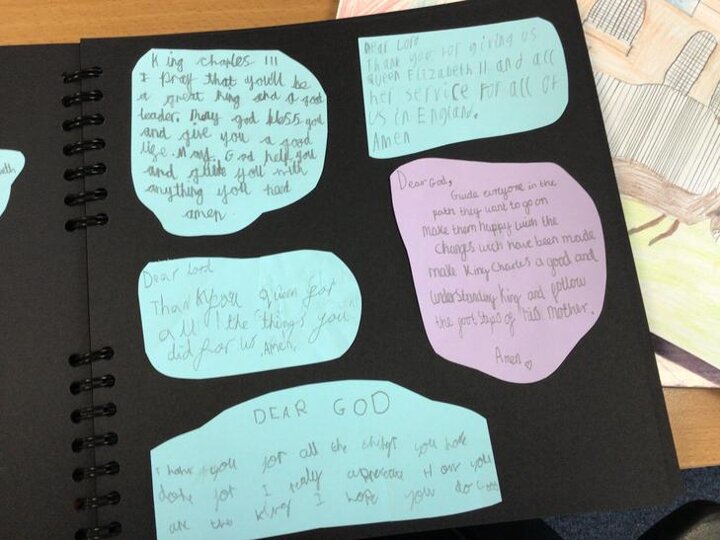 King Charles III
I pray that you'll be
a great king and a good
leader. May god bless you
and give you a good
life. May God help you
and guide you with
anything you need
amen
Dear Lord
Thank you for giving us
Queen Elizabeth II and all
her service for all of
us in England.
Amen
Dear God,
Guide everyone in the
path they want to go on
make them happy with the
changes wich have been made
make King Charles a good and
understanding King and follow
the foot steps of his mother.
Amen
Dear Lord
Thank you queen for
all the things you
did for us. Amen
DEAR GOD
you for all the things you have
done for I realy you
are the King I hope you do